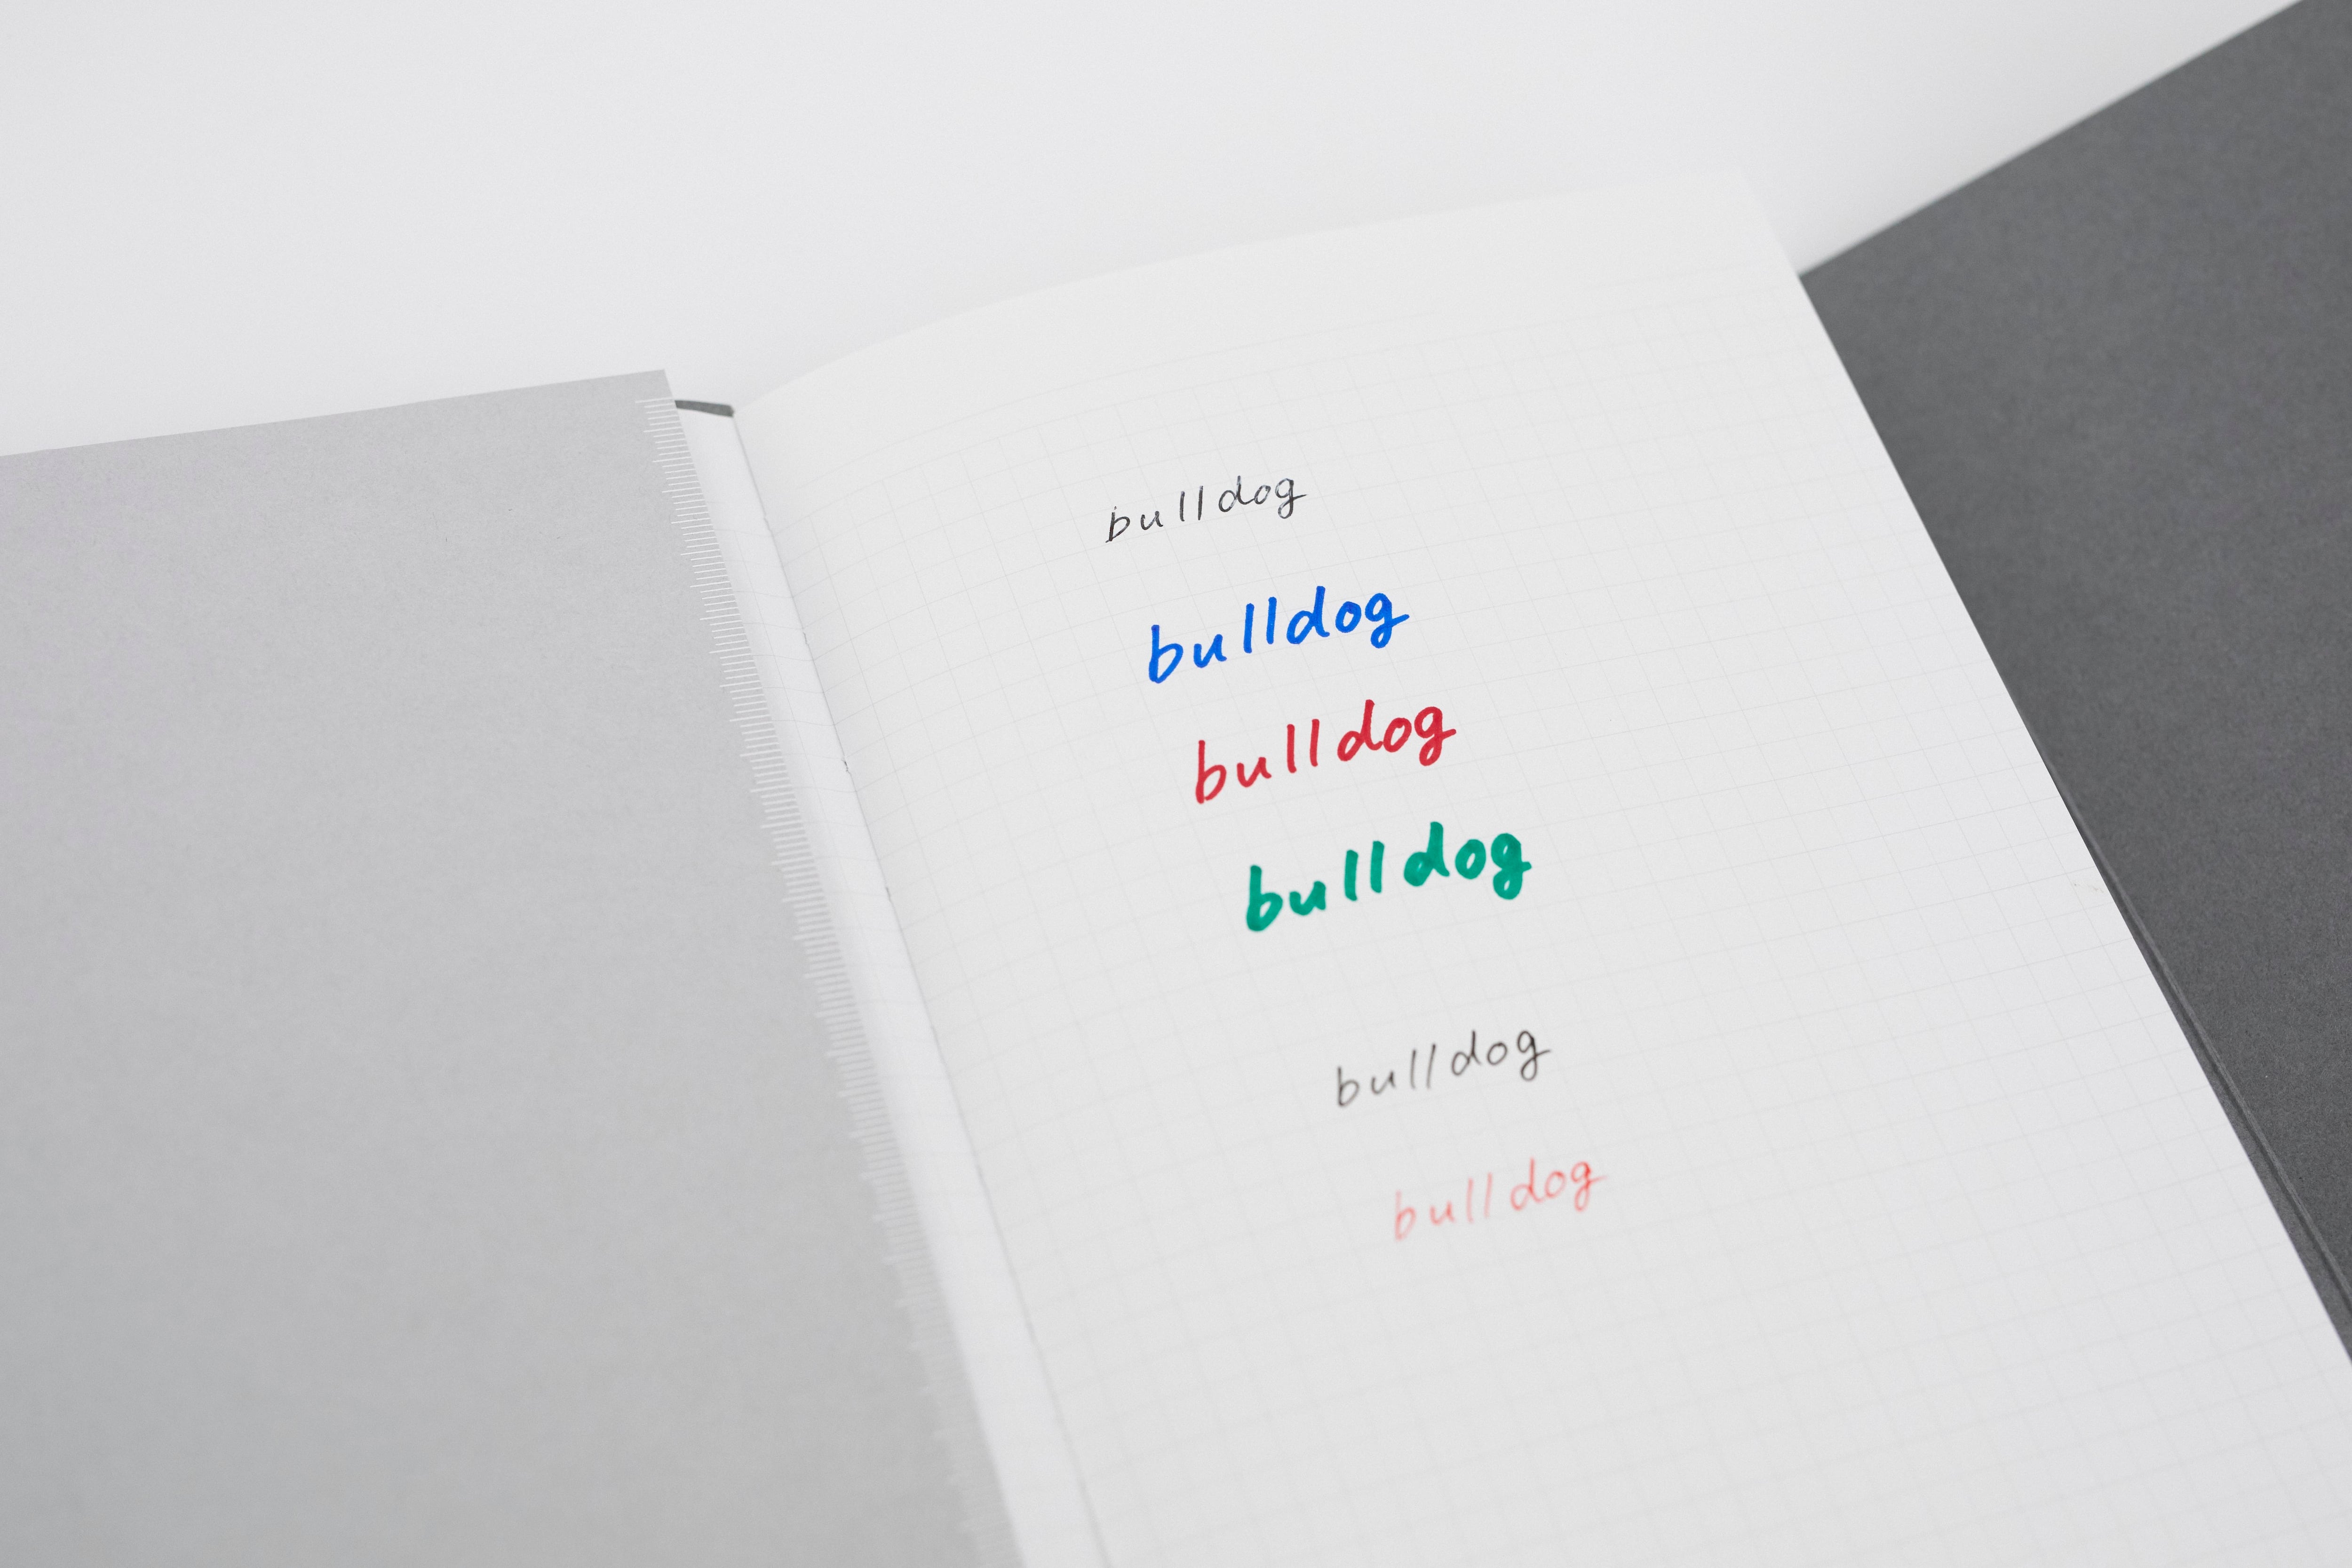 bulldog
bulldog
bulldog
bulldog
bulldog
bulldog